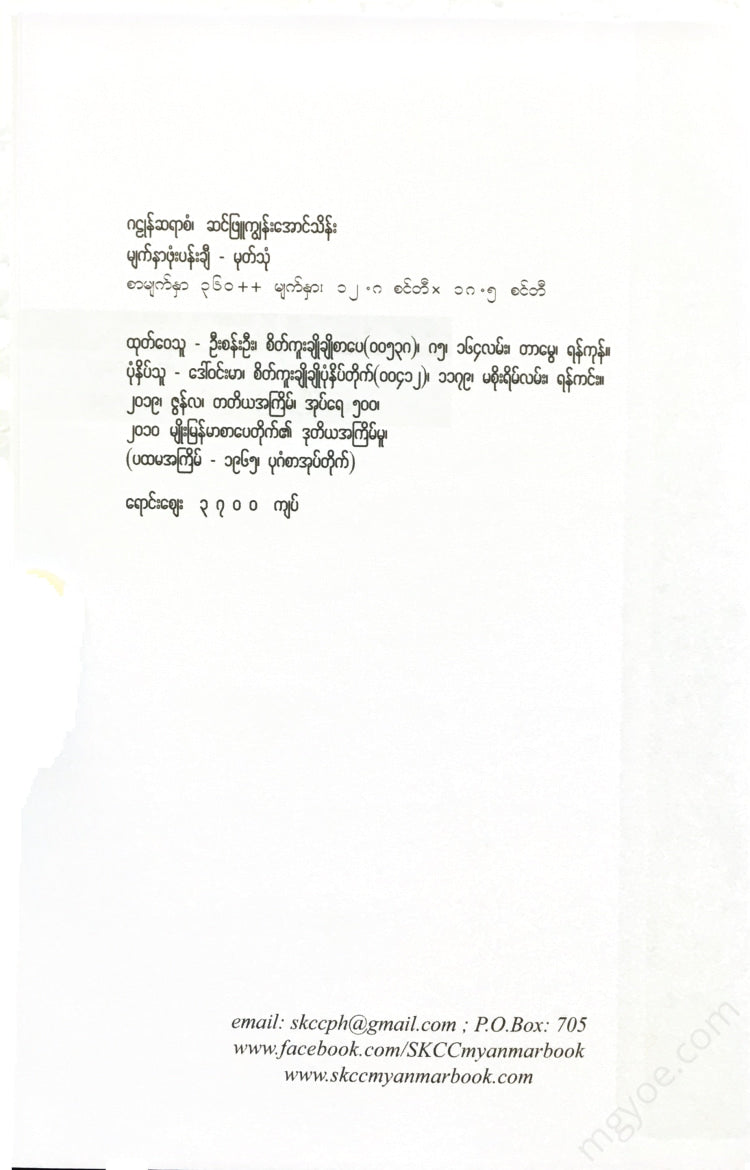 ဂဠုန်ဆရာစံ၊ ဆင်ဖြူကျွန်းအောင်သိန်း
မျက်နှာဖုံးပန်းချီ - မှတ်သုံ
စာမျက်နှာ ၃၆၀++ မျက်နှာ၊ ၁၂.၈ စင်တီ× ၁၈.၅ စင်တီ
ထုတ်ဝေသူ - ဦးစန်းဦး၊ စိတ်ကူးချိုချိုစာပေ(၀၀၅၃၈)၊ ဂ၅၊ ၁၆၄လမ်း၊ တာမွေ၊ ရန်ကုန်။
ပုံနှိပ်သူ - ဒေါ်ဝင်းမာ၊ စိတ်ကူးချိုချိုပုံနှိပ်တိုက်(၀၀၄၁၂)၊ ၁၁၇၉၊ မစိုးရိမ်လမ်း၊ ရန်ကင်း။
၂၀၁၉၊ ဇွန်လ၊ တတိယအကြိမ်၊ အုပ်ရေ ၅၀၀၊
၂၀၁၀ မျိုးမြန်မာစာပေတိုက်၏ ဒုတိယအကြိမ်မူ၊
(ပထမအကြိမ် - ၁၉၆၅၊ ပုဂံစာအုပ်တိုက်)
ရောင်းဈေး ၃ ၇ ၀ ၀ ကျပ်
email: skccph@gmail.com ; P.O.Box: 705
www.facebook.com/SKCCmyanmarbook
www.skccmyanmarbook.com
mgyoe.com